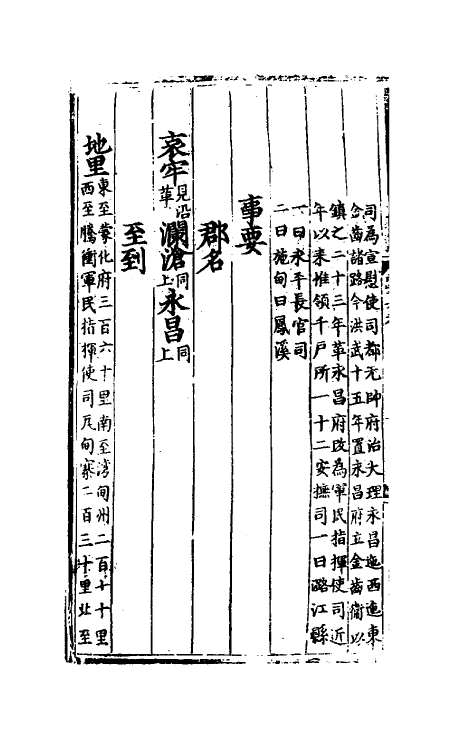 司為宣慰使司都元帥府治大理永昌迤西迤東
金齒諸路今洪武十五年置永昌府立金齒衛以
鎮之二十三年革永昌府改為軍民指揮使司近
年以來惟領千戶所一十二安撫司一曰潞江縣
一曰永平長官司
二曰施甸曰鳳溪
事要
郡名
哀牢見沿革瀾滄同上永昌同上
至到
地里東至蒙化府三百六十里南至灣甸州二百十十里
西至騰衝軍民指揮使司瓦甸寨二百三十里北至